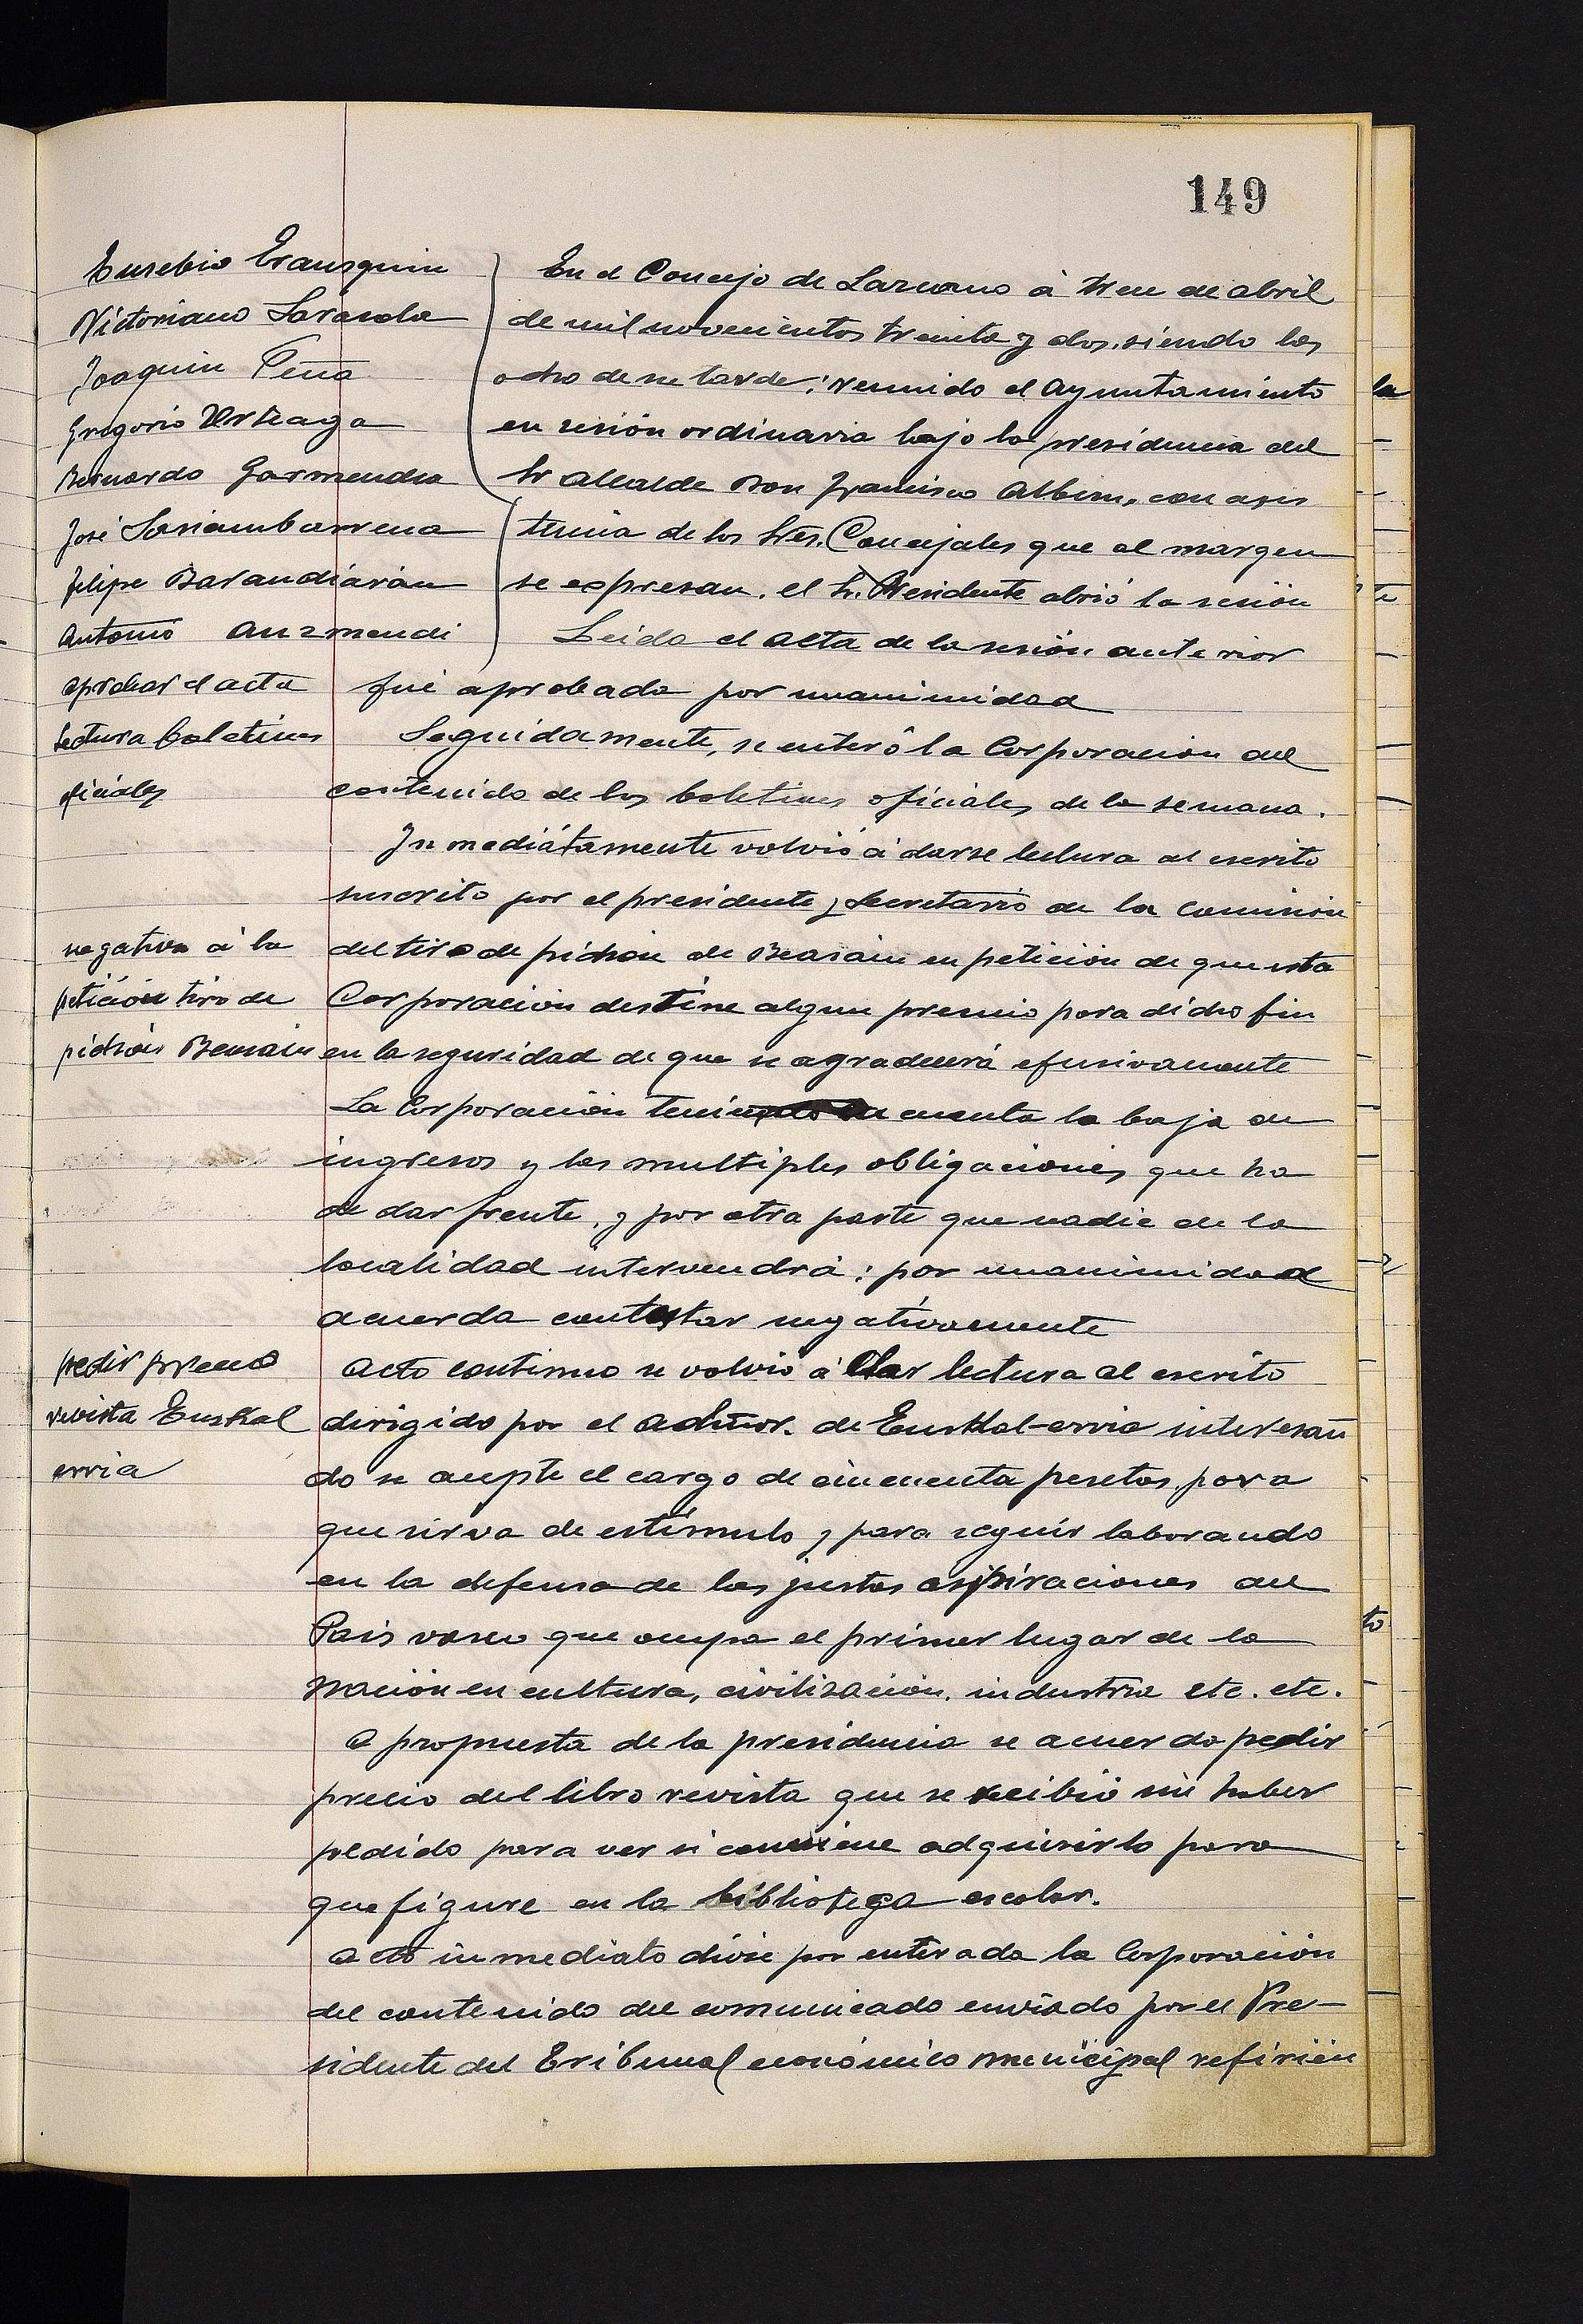 149
Eusebio Erausquin
Victoriano Sarasola
Joaquin Peña
Gregorio Urteaga
Bernardo Garmendia
José Sasiambarrena
Felipe Barandiarán
Antonio Auzmendi
En el Concejo de Lazcano á trece de abril
de mil novecientos treinta y dos, siendo las
ocho de su tarde; reunido el Ayuntamiento
en sesión ordinaria bajo la presidencia del
Sr Alcalde Don Francisco Albisu, con asis
tencia de los Sres. Concejales que al margen
se expresan. el Sr. Presidente abrió la sesión
Leida el acta de la sesión anterior
aprobar el acta
fué aprobada por unanimidad
Lectura boletines
oficiales
Seguidamente, se enteró la Corporación del
contenido de los boletines oficiales de la semana.
Inmediátamente volvió á darse lectura al escrito
suscrito por el presidente y Secretario de la comisión
negativa á la
petición tiro de
pichón Beasain
del tiro de pichón de Beasain en petición de que esta
Corporación destine algun premio para dicho fin
en la seguridad de que se agradecerá efusivamente
La Corporación teniendo en cuenta la baja de
ingresos y las multiples obligaciones que ha
de dar frente, y por otra parte que nadie de la
localidad intervendrá; por unanimidad
acuerda contestar negativamente
pedir precio
revista Euskal
erria
Acto continuo se volvió á dar lectura al escrito
dirigido por el Admor. de Euskal-erria interesan
do se acepte el cargo de cincuenta pesetas para
que sirva de estímulo y para seguir laborando
en la defensa de las justas aspiraciones del
Pais vasco que ocupa el primer lugar de la
Nación en cultura, civilización, industria etc. etc.
A propuesta de la presidencia se acuerda pedir
precio del libro revista que se recibió sin haber
pedido para ver si conviene adquirirlo para
que figure en la bibliotega escolar.
Acto inmediato dióse por enterada la Corporación
del contenido del comunicado enviado por el Pre-
sidente del Tribunal económico municipal refirién
la
te
to